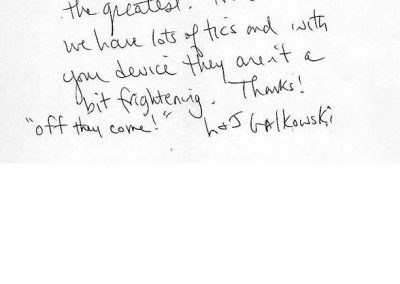 the greatest.
we have lots of tics and with
your device they aren't a
bit frightening. Thanks!
"off they come!" L+J Galkowski